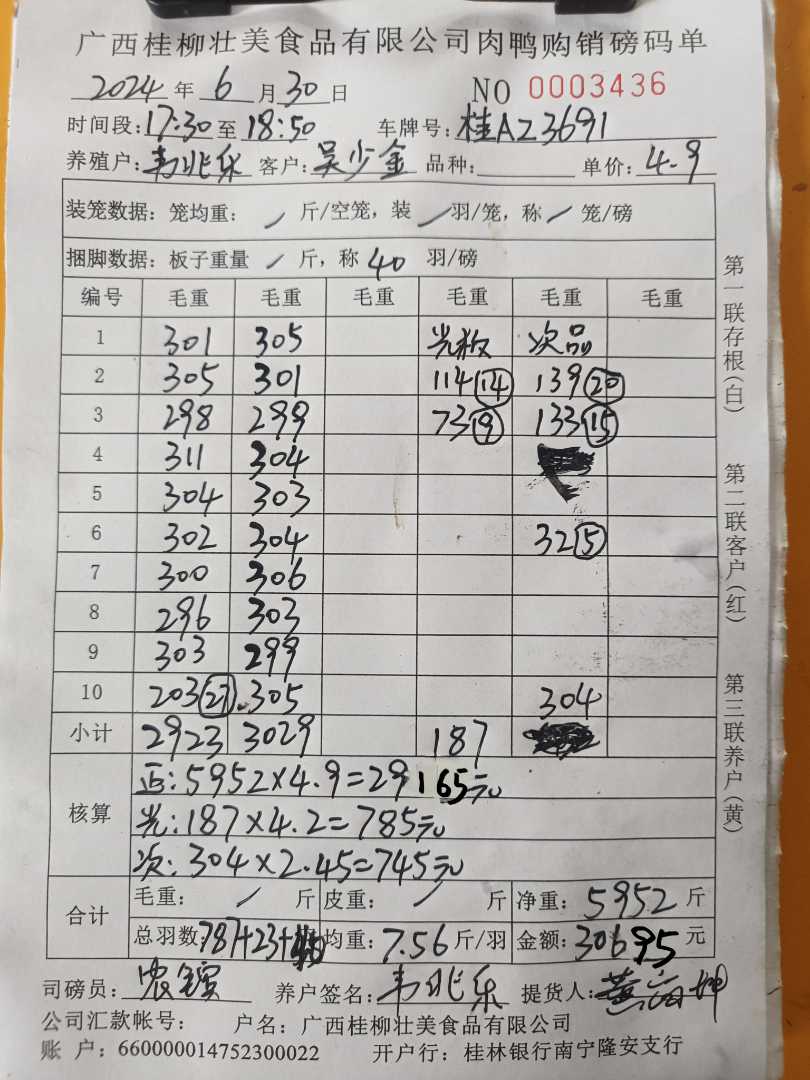 广西桂柳壮美食品有限公司肉鸭购销磅码单
2024年6月30日 NO 0003436
时间段:17:30至18:50 车牌号:桂AZ3691
养殖户:韦兆乐 客户:吴少金 品种: 单价:4.9
装笼数据:笼均重: / 斤/空笼,装 / 羽/笼,称 / 笼/磅
捆脚数据:板子重量 / 斤,称 40 羽/磅
编号 毛重 毛重 毛重 毛重 毛重 毛重
1 301 305 光板 次品
2 305 301 114(14) 139(20)
3 298 299 73(9) 133(15)
4 311 304
5 304 303
6 302 304 32(5)
7 300 306
8 296 303
9 303 299
10 203(27) 305 304
小计 2923 3029 187
核算
正:5952×4.9=29165元
光:187×4.2=785元
次:304×2.45=745元
合计
毛重: / 斤 皮重: / 斤 净重:5952斤
总羽数:787+23+ 均重:7.56斤/羽 金额:30695元
司磅员: 养户签名:韦兆乐 提货人:
公司汇款帐号: 户名:广西桂柳壮美食品有限公司
账 户:660000014752300022 开户行:桂林银行南宁隆安支行
第一联存根(白)
第二联客户(红)
第三联养户(黄)